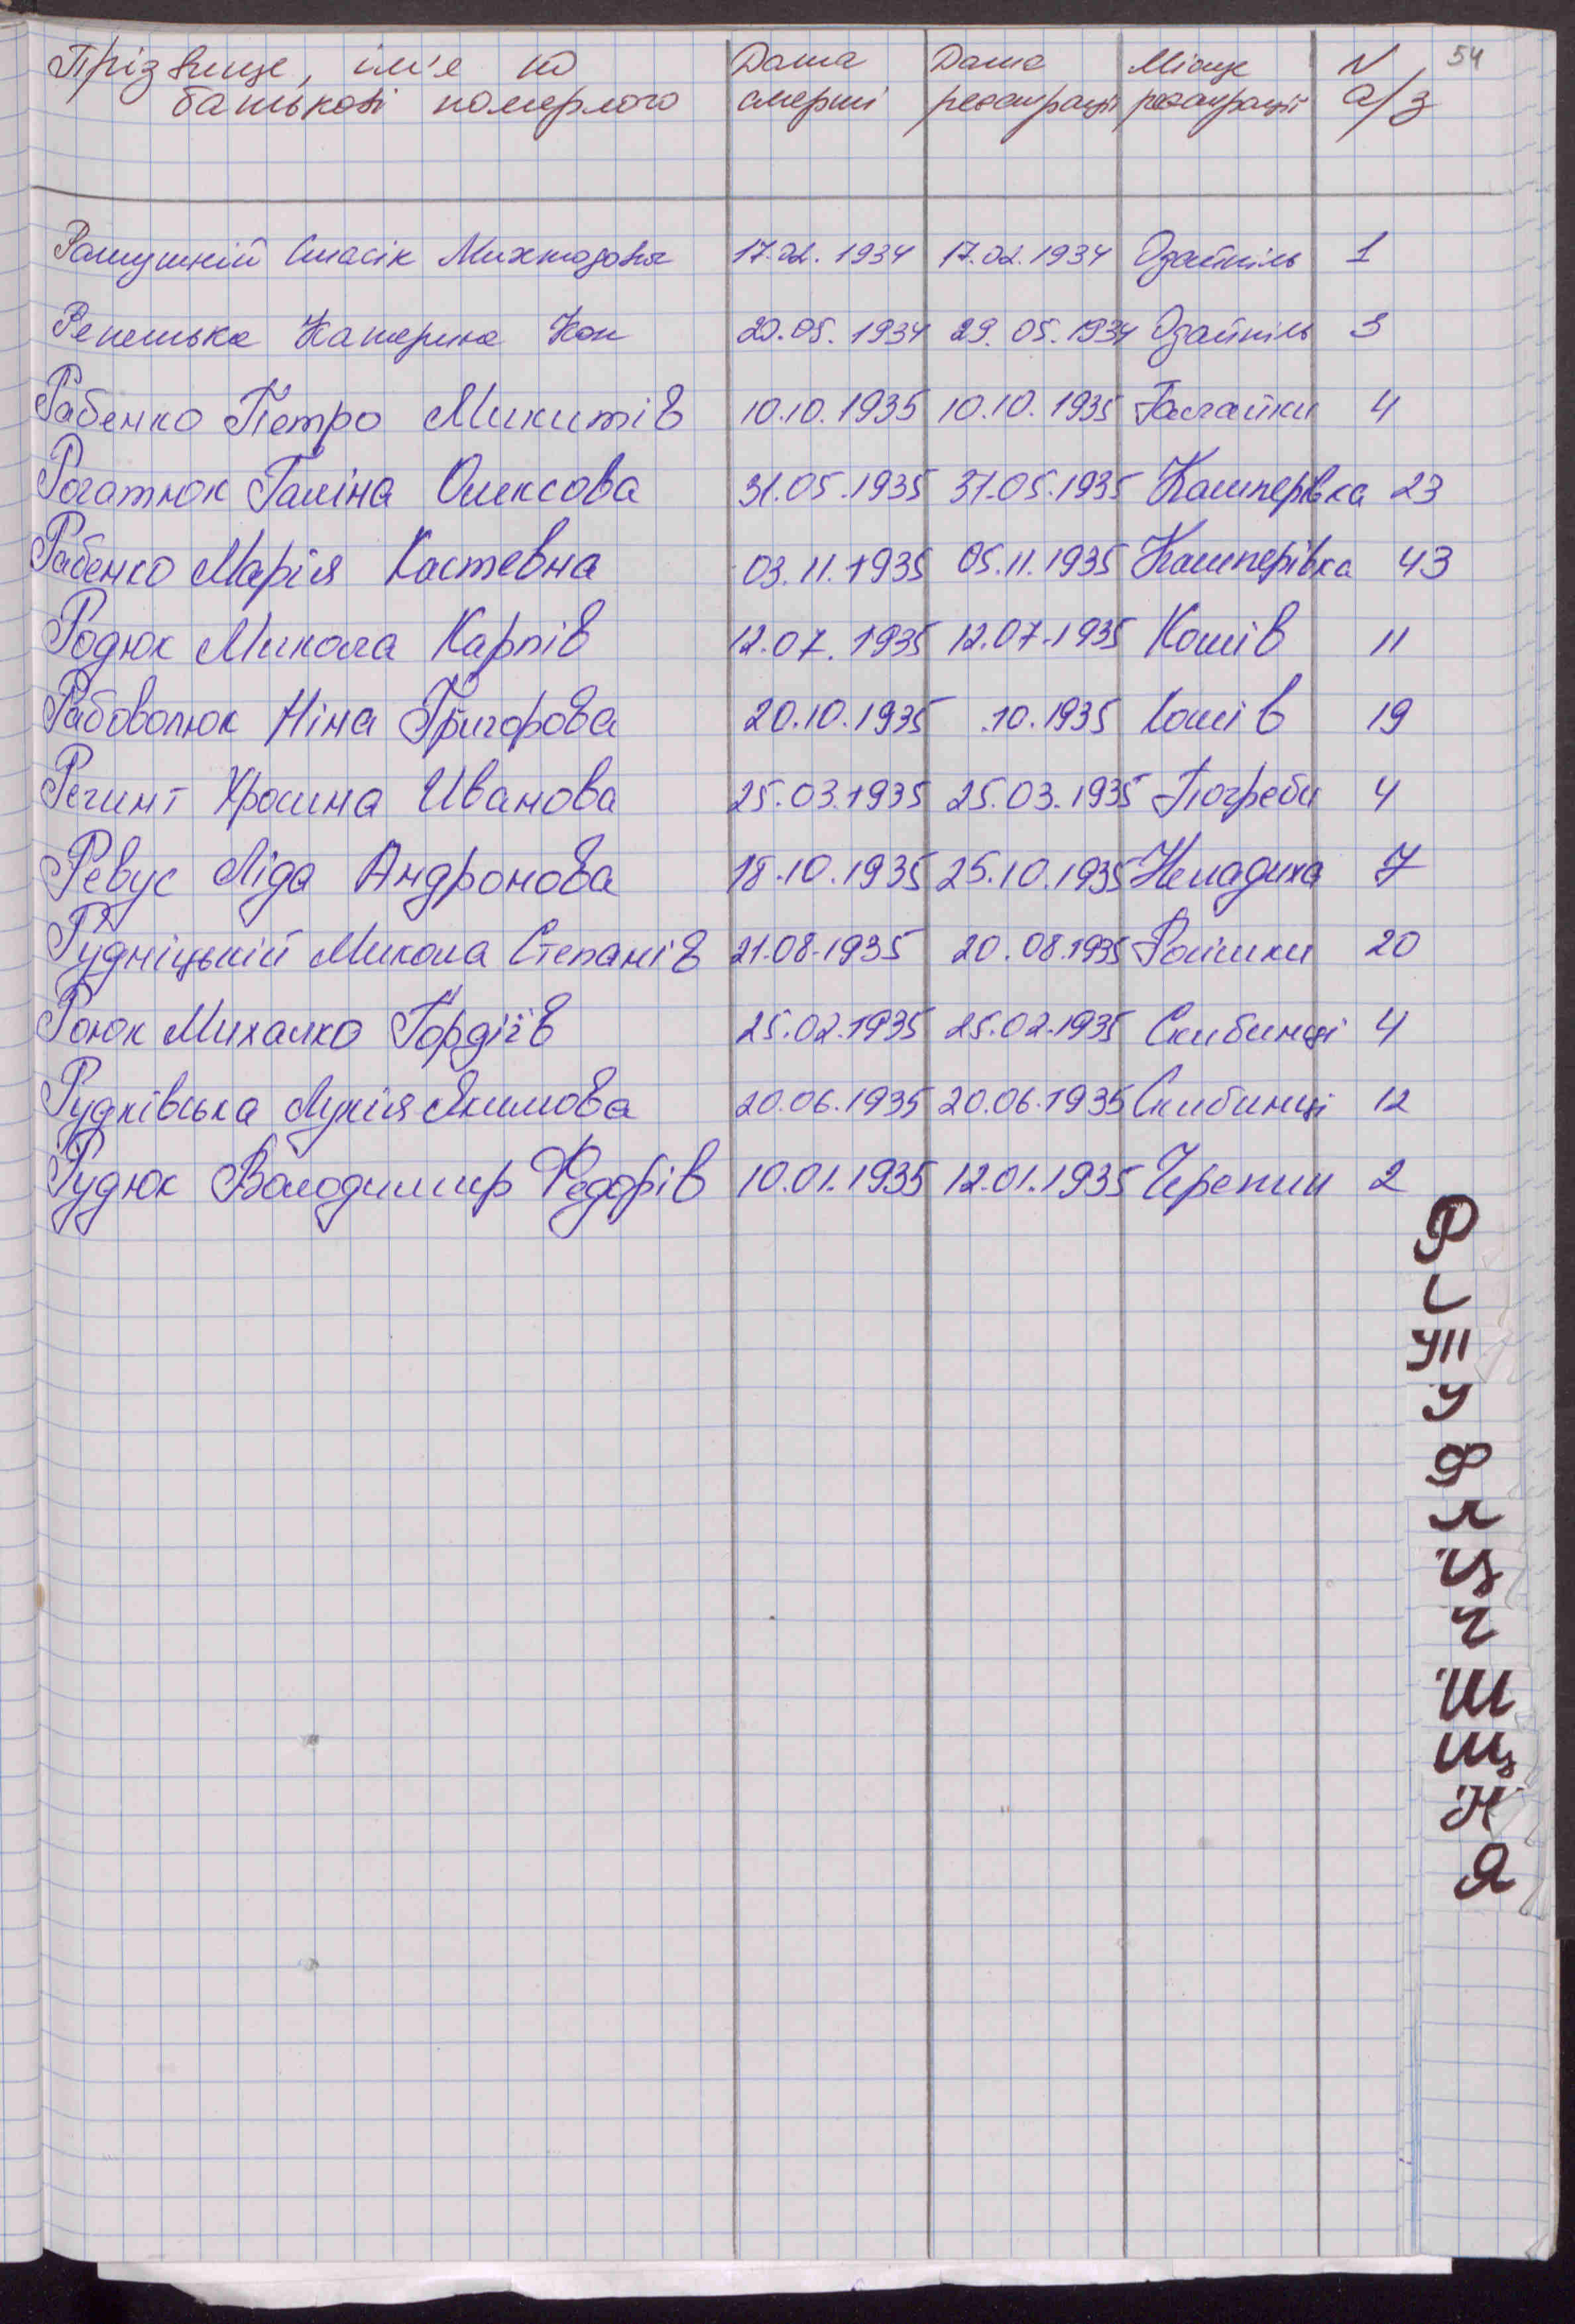 Прізвище, ім'я по Дата Дата Місце N 54
батькові померлого смерті реєстрації реєстрації а/з
Стасік 17.02.1934 17.02.1934 Озайпіль 1
Катерина 29.05.1934 29.05.1934 Озайпіль 3
Рабенко Петро Микитів 10.10.1935 10.10.1935 Галайки 4
Рогатюк Галіна Олексова 31.05.1935 31.05.1935 Кашперівка 23
Рабенко Марія Костевна 03.11.1935 05.11.1935 Кашперівка 43
Родюк Микола Карпів 12.07.1935 12.07.1935 Кошів 11
Рабоволюк Ніна Григорова 20.10.1935 .10.1935 Кошів 19
Іванова 25.03.1935 25.03.1935 Погреби 4
Ревус Ліда Андронова 18.10.1935 25.10.1935 Ненадиха 7
Рудніцькій Микола Степанів 21.08.1935 20.08.1935 20
Роюк Михалко Гордіїв 25.02.1935 25.02.1935 Скибинці 4
Рудківська Лукія Якимова 20.06.1935 20.06.1935 Скибинці 12
Рудюк Володимир Федорів 10.01.1935 12.01.1935 Черепин 2
Р
С
У
Ф
Х
Ц
Ч
Ш
Щ
Ю
Я